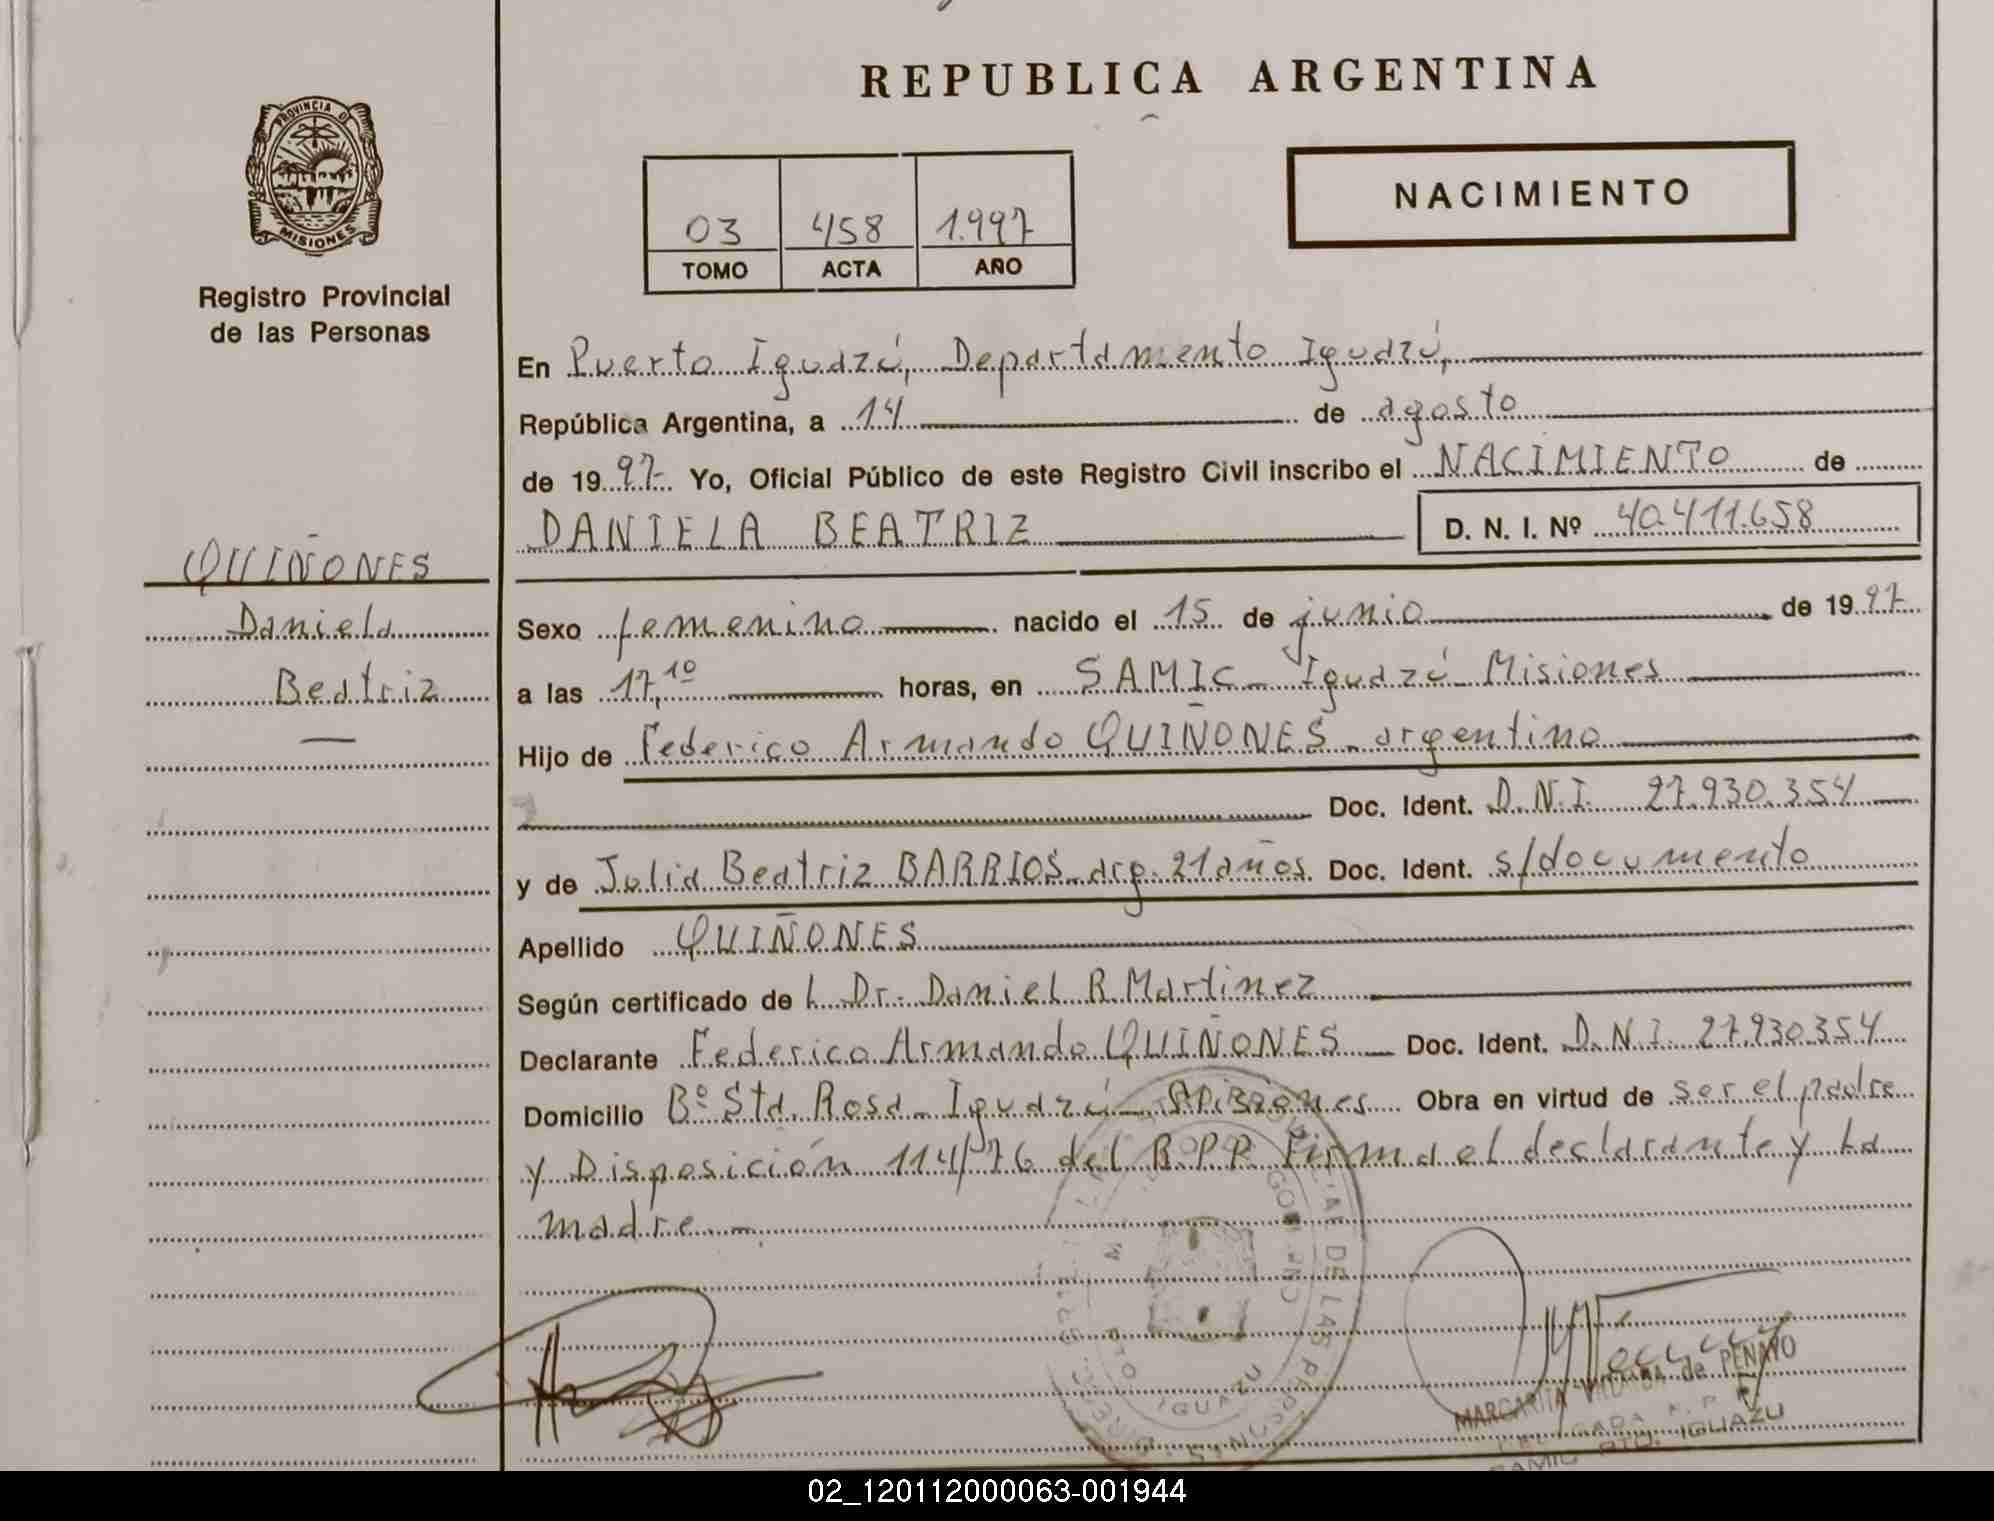 PROVINCIA D
MISIONES
Registro Provincial
de las Personas
QUIÑONES
Daniela
Beatriz
REPUBLICA ARGENTINA
03 458 1.997
TOMO ACTA AÑO
NACIMIENTO
En Puerto Iguazú, Departamento Iguazú,
República Argentina, a 14 de agosto
de 1997 Yo, Oficial Público de este Registro Civil inscribo el NACIMIENTO de
DANIELA BEATRIZ D. N. I. Nº 40.411.658
Sexo femenino nacido el 15 de junio de 1997
a las 17,10 horas, en SAMIC - Iguazú - Misiones
Hijo de Federico Armando QUIÑONES - argentino
Doc. Ident. D.N.I. 27.930.354
y de Julia Beatriz BARRIOS - arg. 21 años. Doc. Ident. s/documento
Apellido QUIÑONES
Según certificado de l Dr. Daniel R. Martinez
Declarante Federico Armando QUIÑONES Doc. Ident. D.N.I. 27.930.354
Domicilio Bº Sta. Rosa - Iguazú - Misiones Obra en virtud de ser el padre
y Disposición 114/76 del R.P.P. Firma el declarante y la
madre.-
DE LAS PERSONAS
PTO IGUAZU
MARGARITA de PENAYO
PTO. IGUAZU
02_120112000063-001944